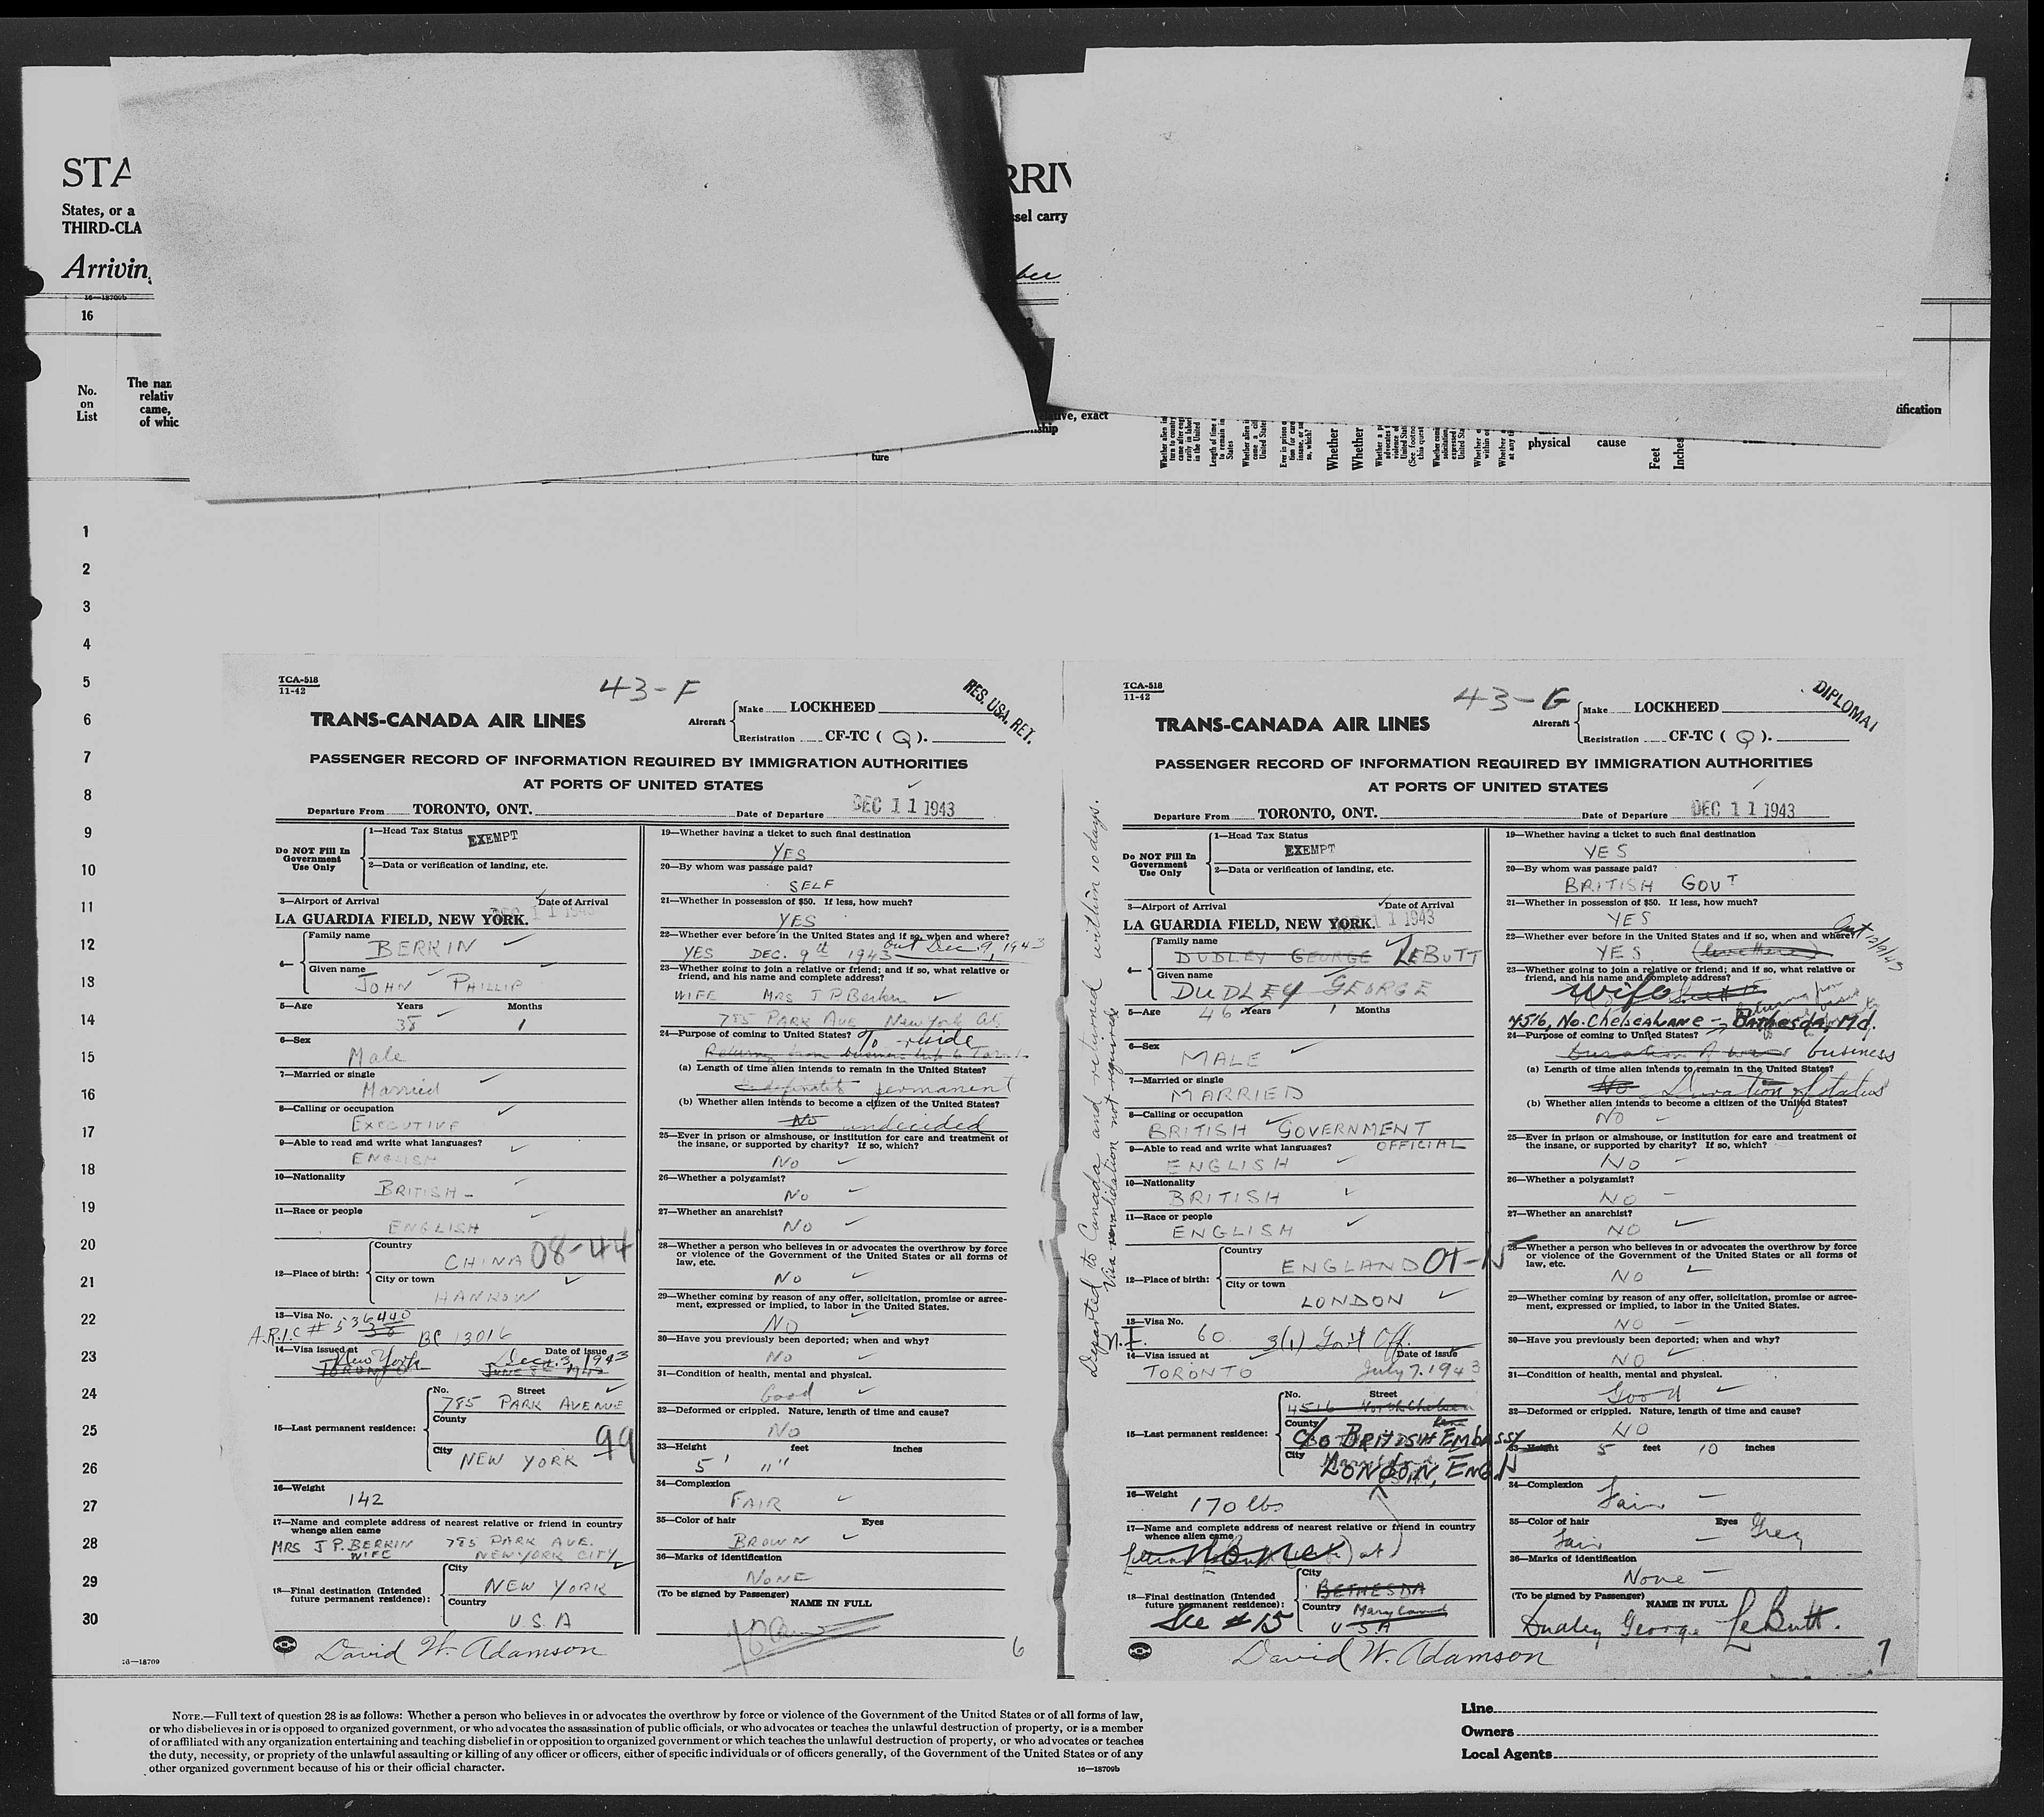 STA
RRIV
States, or a
ssel carry
THIRD-CLA
Arrivin
ber
16—18709b
16
No.
on
List
The nar
relativ
came,
of whic
tive, exact
ship
ture
physical
cause
Feet
Inches
tification
1
2
3
4
5
6
7
8
9
10
11
12
13
14
15
16
17
18
19
20
21
22
23
24
25
26
27
28
29
30
TCA-518
11-42
43-F
RES. USA. RET.
TRANS-CANADA AIR LINES
Aircraft
Make LOCKHEED
Registration CF-TC ( Q ).
PASSENGER RECORD OF INFORMATION REQUIRED BY IMMIGRATION AUTHORITIES
AT PORTS OF UNITED STATES
Departure From TORONTO, ONT. Date of Departure DEC 11 1943
Do NOT Fill In
Government
Use Only
1—Head Tax Status EXEMPT
2—Data or verification of landing, etc.
3—Airport of Arrival Date of Arrival
LA GUARDIA FIELD, NEW YORK. DEC 11 1943
4—
Family name
BERKIN
Given name
JOHN PHILLIP
5—Age Years Months
38 1
6—Sex
Male
7—Married or single
Married
8—Calling or occupation
EXECUTIVE
9—Able to read and write what languages?
ENGLISH
10—Nationality
BRITISH
11—Race or people
ENGLISH
12—Place of birth:
Country
CHINA 08-44
City or town
HANKOW
13—Visa No.
A.R.I.C # 536440
38
BC 13016
14—Visa issued at Date of issue
New York Dec. 3, 1943
TORONTO JUNE
15—Last permanent residence:
No. Street
785 PARK AVENUE
County
City
NEW YORK 99
16—Weight
142
17—Name and complete address of nearest relative or friend in country
whence alien came
MRS J P. BERKIN 785 PARK AVE.
WIFE NEW YORK CITY
18—Final destination (Intended
future permanent residence):
City
NEW YORK
Country
U.S.A
David W. Adamson
19—Whether having a ticket to such final destination
YES
20—By whom was passage paid?
SELF
21—Whether in possession of $50. If less, how much?
YES
22—Whether ever before in the United States and if so, when and where?
YES DEC. 9th 1943 out Dec. 9, 1943
23—Whether going to join a relative or friend; and if so, what relative or
friend, and his name and complete address?
WIFE MRS J P Berkin
785 PARK AVE New York City
24—Purpose of coming to United States? To reside
Returning from business trip to Toronto
(a) Length of time alien intends to remain in the United States?
Indefinitely permanent
(b) Whether alien intends to become a citizen of the United States?
No undecided
25—Ever in prison or almshouse, or institution for care and treatment of
the insane, or supported by charity? If so, which?
No
26—Whether a polygamist?
No
27—Whether an anarchist?
No
28—Whether a person who believes in or advocates the overthrow by force
or violence of the Government of the United States or all forms of
law, etc.
No
29—Whether coming by reason of any offer, solicitation, promise or agree-
ment, expressed or implied, to labor in the United States.
NO
30—Have you previously been deported; when and why?
No
31—Condition of health, mental and physical.
Good
32—Deformed or crippled. Nature, length of time and cause?
No
33—Height feet inches
5'
34—Complexion
FAIR
35—Color of hair Eyes
BROWN
36—Marks of identification
NONE
(To be signed by Passenger)
NAME IN FULL
6
Departed to Canada and returned within 10 days.
Visa revalidation not required
TCA-518
11-42
43-G
DIPLOMAT
TRANS-CANADA AIR LINES
Aircraft
Make LOCKHEED
Registration CF-TC ( Q ).
PASSENGER RECORD OF INFORMATION REQUIRED BY IMMIGRATION AUTHORITIES
AT PORTS OF UNITED STATES
Departure From TORONTO, ONT. Date of Departure DEC 11 1943
Do NOT Fill In
Government
Use Only
1—Head Tax Status
EXEMPT
2—Data or verification of landing, etc.
3—Airport of Arrival Date of Arrival
LA GUARDIA FIELD, NEW YORK. DEC 11 1943
4—
Family name
DUDLEY GEORGE LEBUTT
Given name
DUDLEY GEORGE
5—Age 46 Years 1 Months
6—Sex
MALE
7—Married or single
MARRIED
8—Calling or occupation
BRITISH GOVERNMENT
9—Able to read and write what languages? OFFICIAL
ENGLISH
10—Nationality
BRITISH
11—Race or people
ENGLISH
12—Place of birth:
Country
ENGLAND
City or town
LONDON
13—Visa No.
60. 3(1) Gov't Off.
14—Visa issued at Date of issue
TORONTO July 7. 1943
15—Last permanent residence:
No. Street
4516 North Chelsea
Lane
County
c/o BRITISH EMBASSY
City
LONDON, ENG.
16—Weight
170 lbs
17—Name and complete address of nearest relative or friend in country
whence alien came
None at
18—Final destination (Intended
future permanent residence):
See #15
City
BETHESDA
Country Maryland
U.S.A
David W. Adamson
19—Whether having a ticket to such final destination
YES
20—By whom was passage paid?
BRITISH GOVT
21—Whether in possession of $50. If less, how much?
YES
22—Whether ever before in the United States and if so, when and where?
YES Out 12/9/43
23—Whether going to join a relative or friend; and if so, what relative or
friend, and his name and complete address?
wife
4516, No. Chelsea Lane - Bethesda, Md.
24—Purpose of coming to United States?
business
(a) Length of time alien intends to remain in the United States?
No Duration of status
(b) Whether alien intends to become a citizen of the United States?
NO
25—Ever in prison or almshouse, or institution for care and treatment of
the insane, or supported by charity? If so, which?
NO
26—Whether a polygamist?
NO
27—Whether an anarchist?
NO
28—Whether a person who believes in or advocates the overthrow by force
or violence of the Government of the United States or all forms of
law, etc.
NO
29—Whether coming by reason of any offer, solicitation, promise or agree-
ment, expressed or implied, to labor in the United States.
NO
30—Have you previously been deported; when and why?
NO
31—Condition of health, mental and physical.
Good
32—Deformed or crippled. Nature, length of time and cause?
NO
33—Height 5 feet 10 inches
34—Complexion
Fair
35—Color of hair Eyes Grey
Fair
36—Marks of identification
None
(To be signed by Passenger)
NAME IN FULL
Dudley George LeButt.
7
16—18709
NOTE.—Full text of question 28 is as follows: Whether a person who believes in or advocates the overthrow by force or violence of the Government of the United States or of all forms of law,
or who disbelieves in or is opposed to organized government, or who advocates the assassination of public officials, or who advocates or teaches the unlawful destruction of property, or is a member
of or affiliated with any organization entertaining and teaching disbelief in or opposition to organized government or which teaches the unlawful destruction of property, or who advocates or teaches
the duty, necessity, or propriety of the unlawful assaulting or killing of any officer or officers, either of specific individuals or of officers generally, of the Government of the United States or of any
other organized government because of his or their official character.
16—18709b
Line
Owners
Local Agents